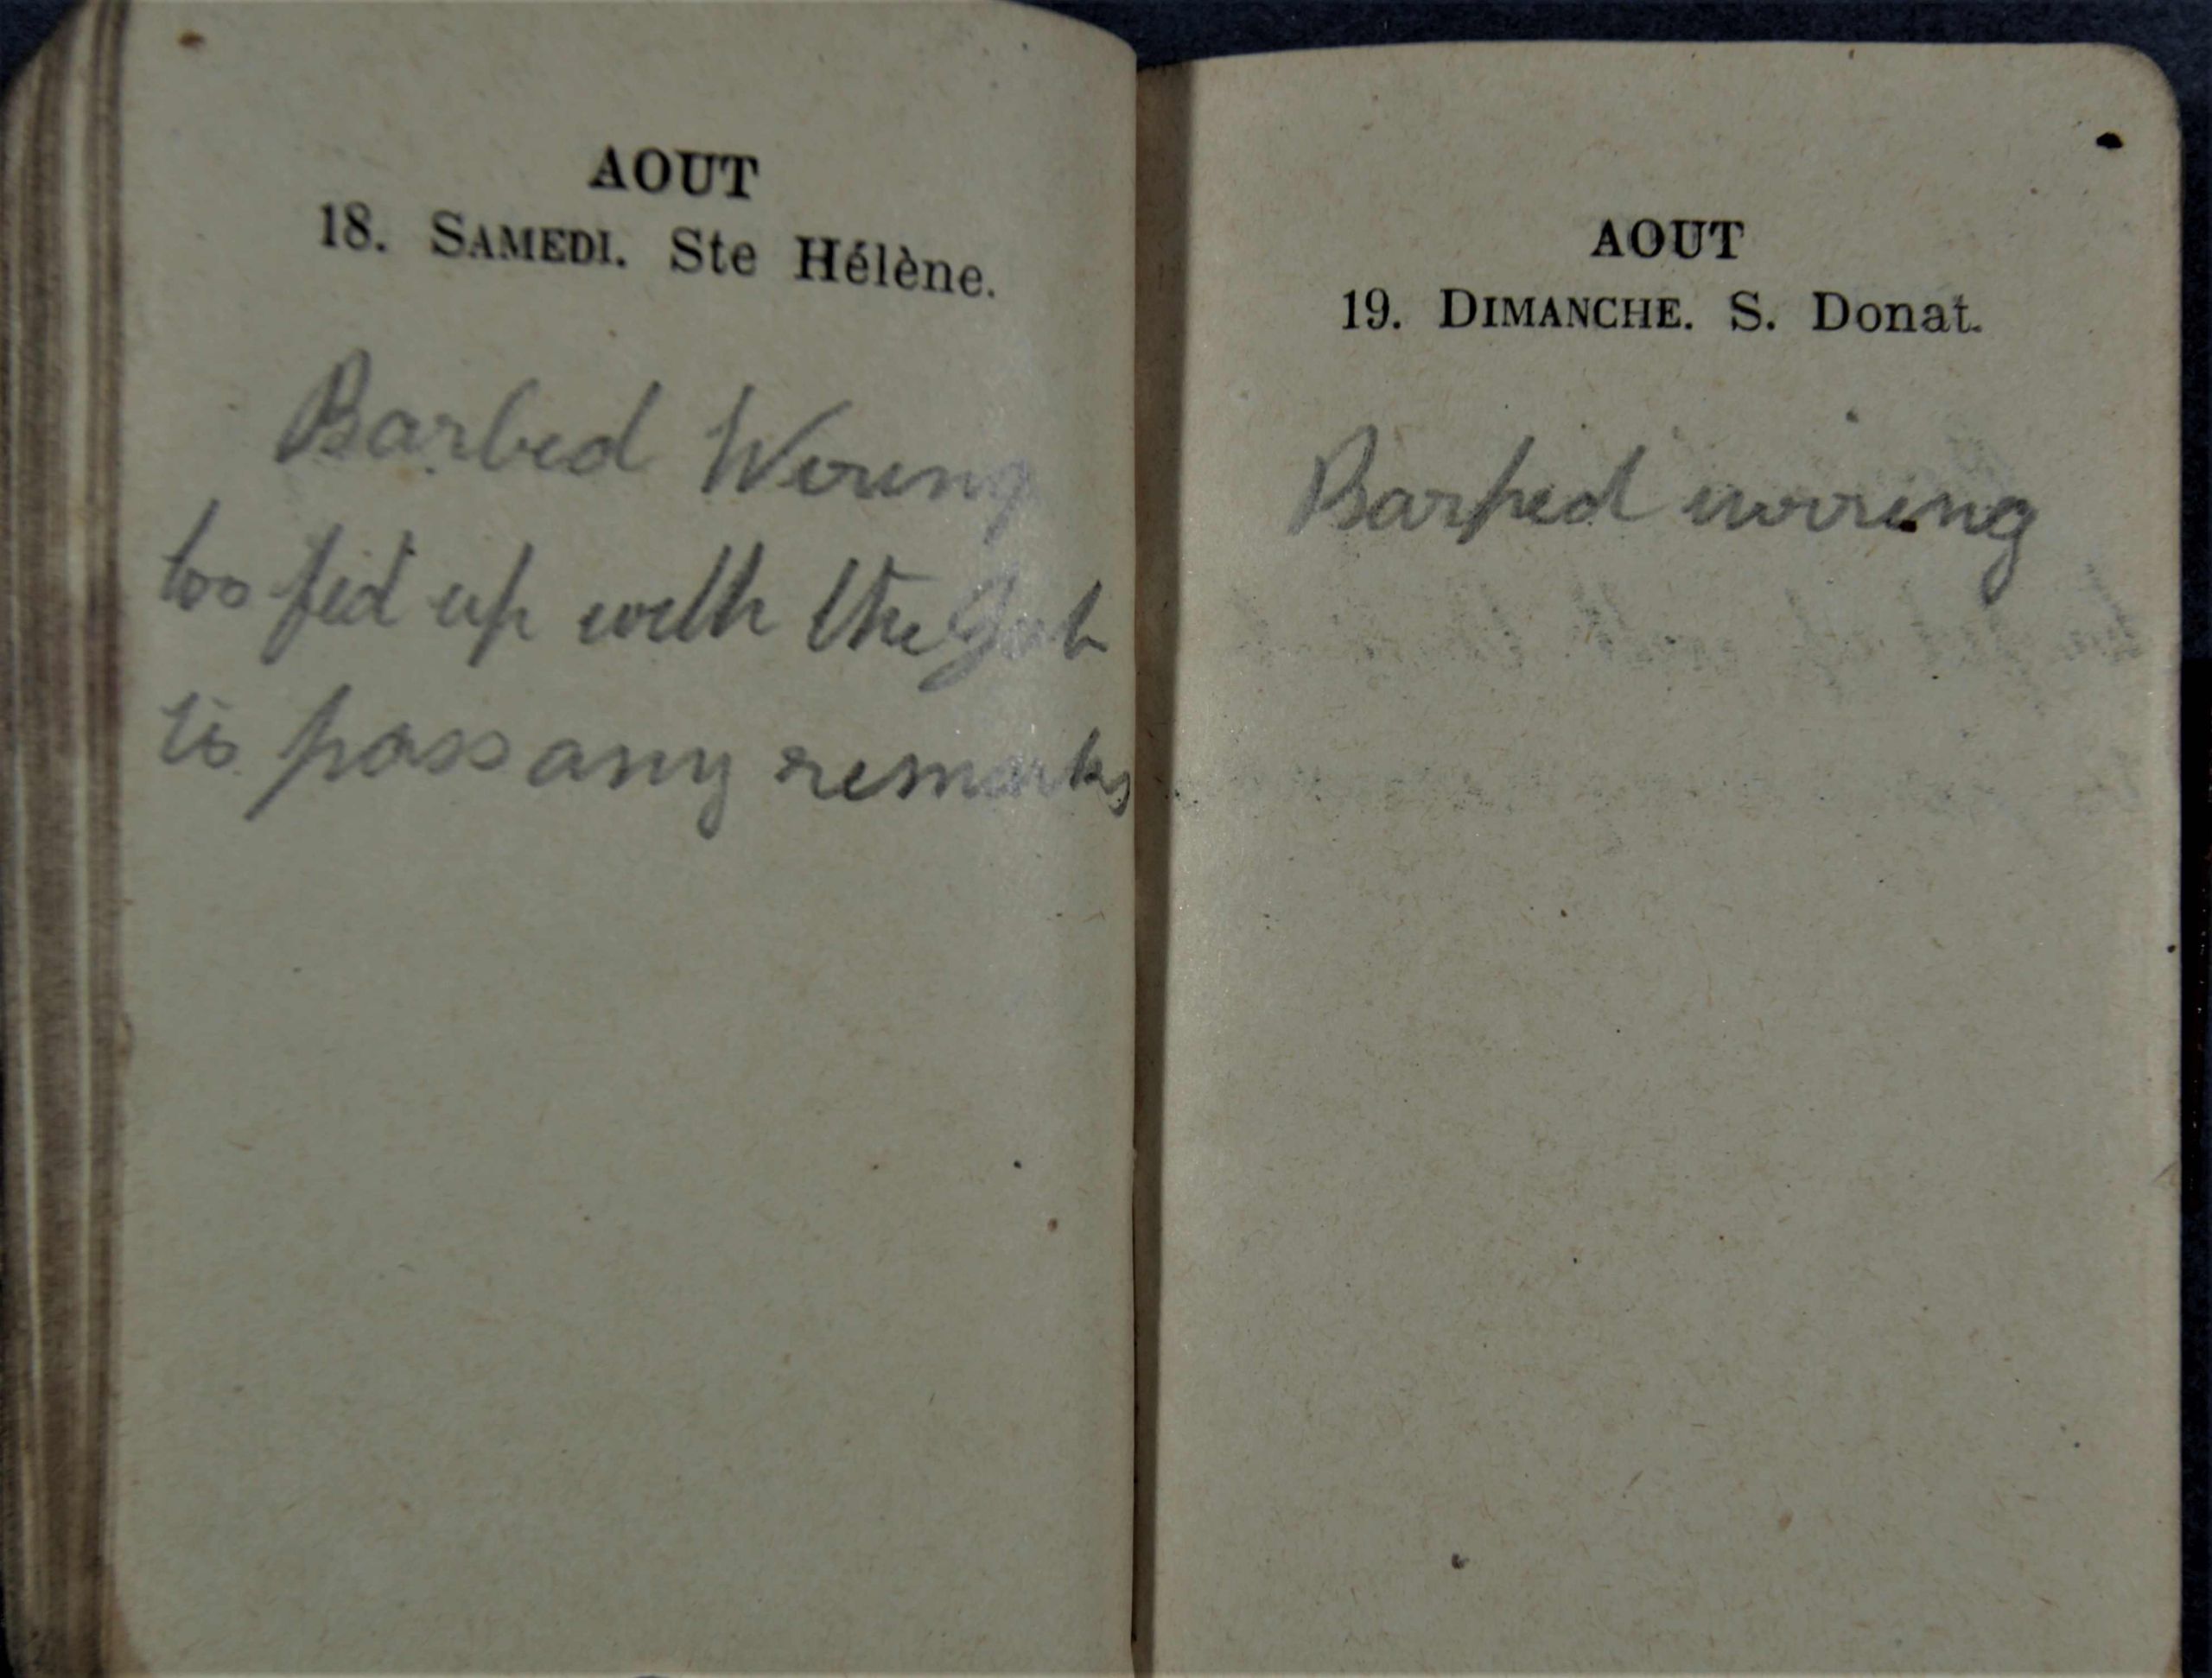 AOUT
18. SAMEDI. Ste Hélène.
Barbed Wireing
too fed up with the Job
to pass any remarks
AOUT
19. DIMANCHE. S. Donat.
Barbed wireing